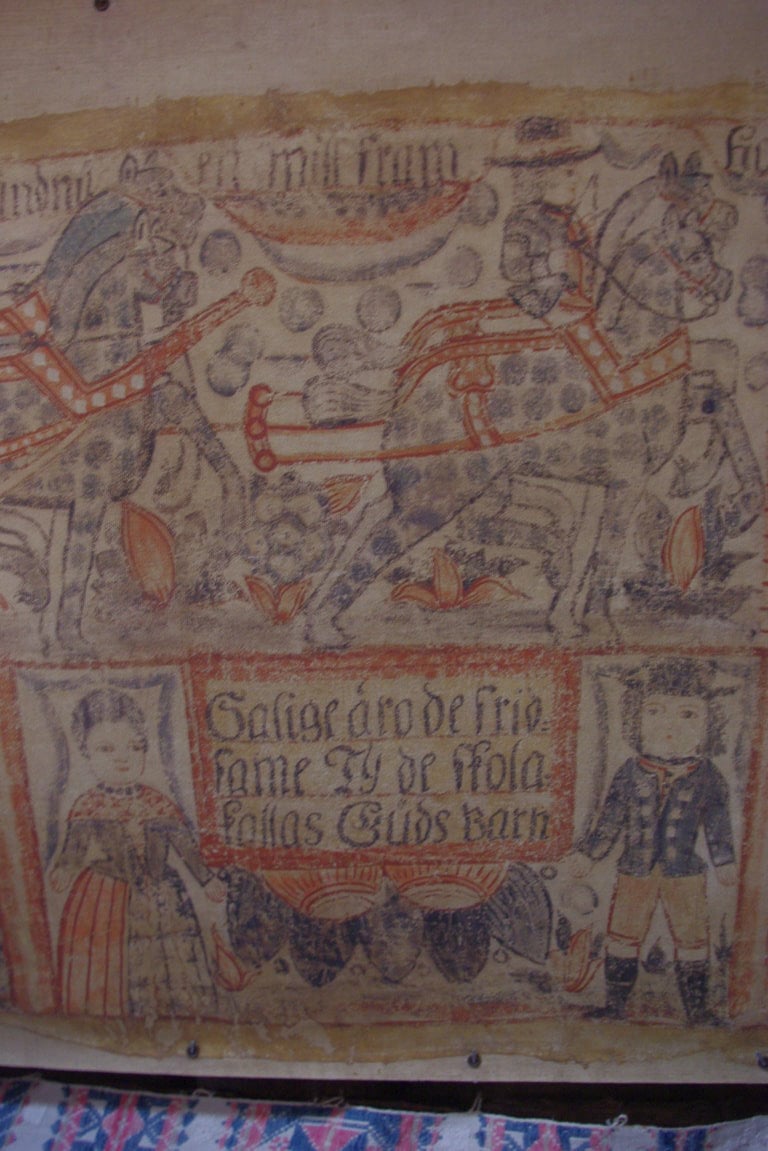 en mill fram
Salige äro de frid-
same Ty de skola
kallas Güds Barn